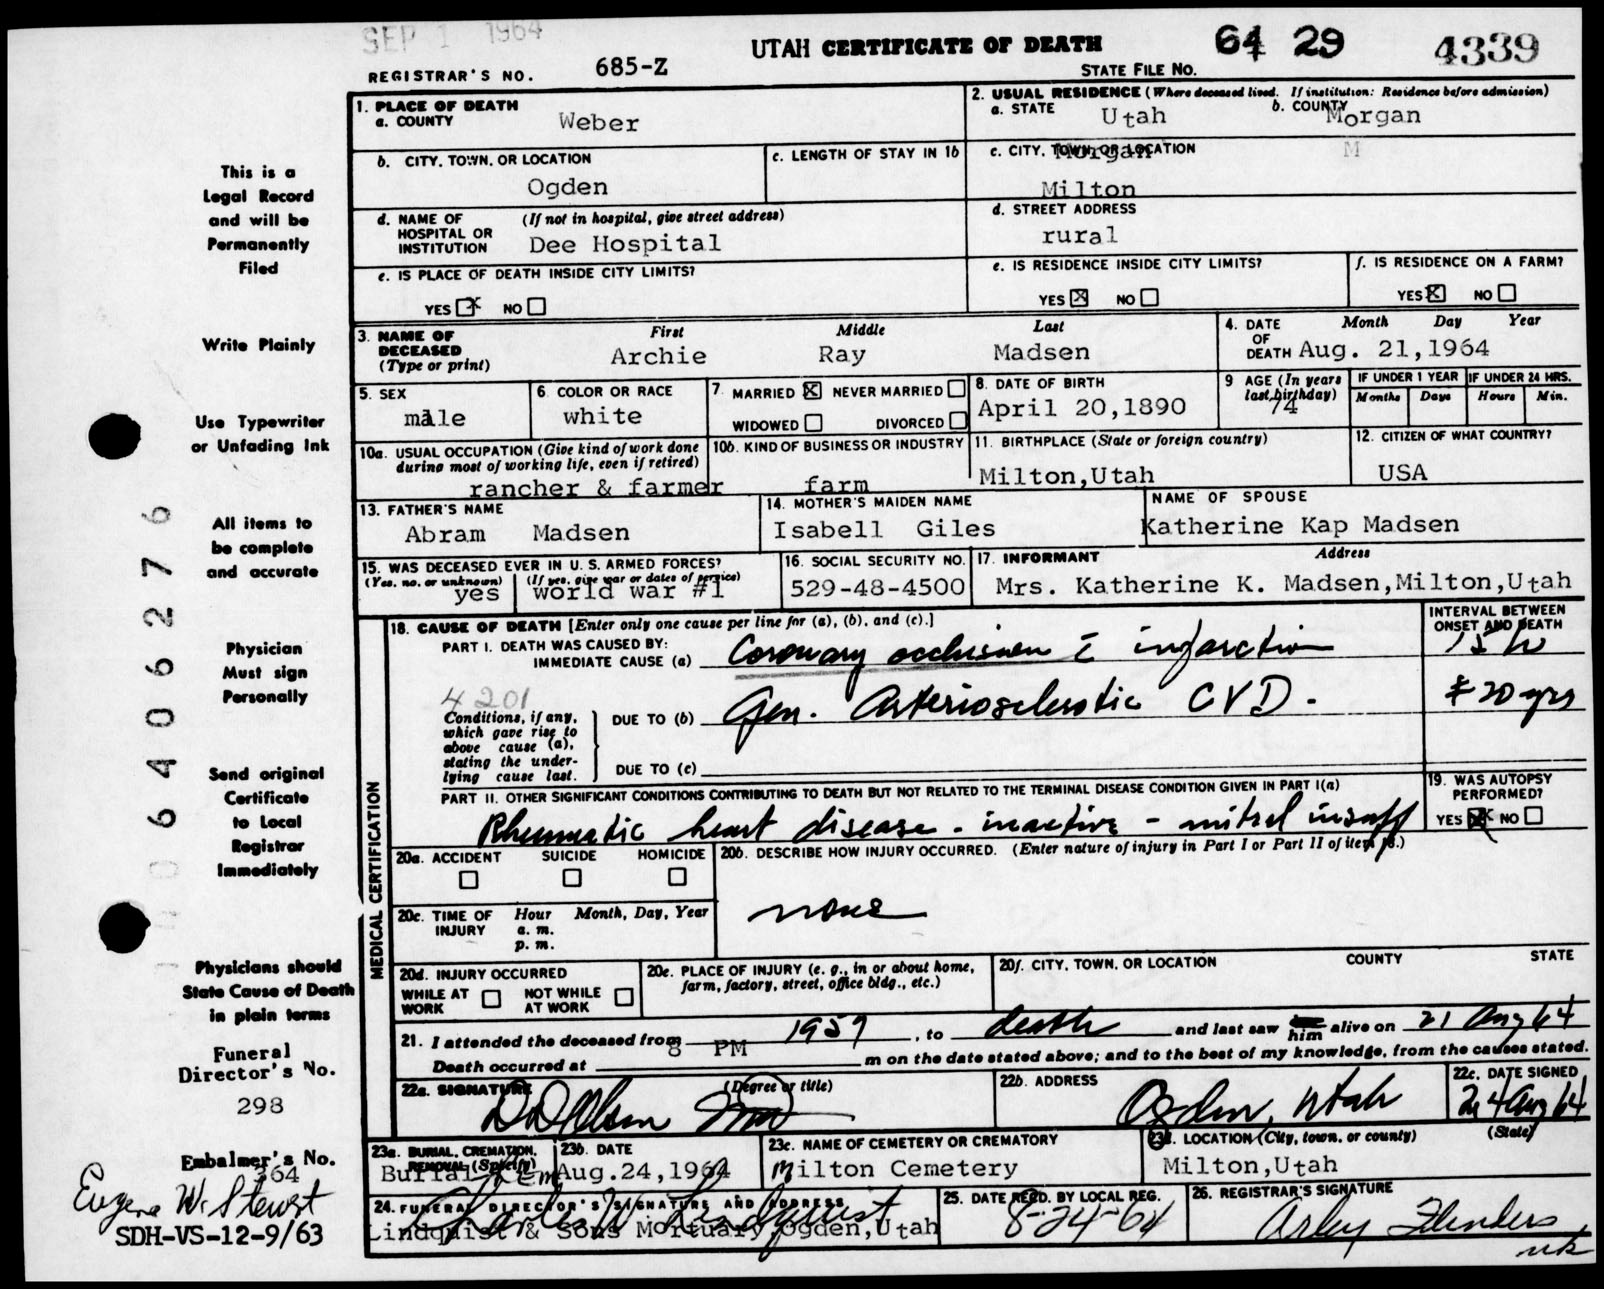 SEP 1 1964
REGISTRAR'S NO. 685-Z
UTAH CERTIFICATE OF DEATH
64 29 4339
STATE FILE NO.
1. PLACE OF DEATH
a. COUNTY Weber
2. USUAL RESIDENCE (Where deceased lived. If institution: Residence before admission)
a. STATE Utah b. COUNTY Morgan
b. CITY, TOWN, OR LOCATION
Ogden
c. LENGTH OF STAY IN 1b
c. CITY, TOWN, OR LOCATION
Morgan M
Milton
d. NAME OF HOSPITAL OR INSTITUTION (If not in hospital, give street address)
Dee Hospital
d. STREET ADDRESS
rural
e. IS PLACE OF DEATH INSIDE CITY LIMITS?
YES X NO
e. IS RESIDENCE INSIDE CITY LIMITS?
YES X NO
f. IS RESIDENCE ON A FARM?
YES X NO
3. NAME OF DECEASED (Type or print)
First Middle Last
Archie Ray Madsen
4. DATE OF DEATH Month Day Year
Aug. 21,1964
5. SEX
male
6. COLOR OR RACE
white
7. MARRIED X NEVER MARRIED
WIDOWED DIVORCED
8. DATE OF BIRTH
April 20,1890
9 AGE (In years last birthday)
74
IF UNDER 1 YEAR
Months Days
IF UNDER 24 HRS.
Hours Min.
10a. USUAL OCCUPATION (Give kind of work done during most of working life, even if retired)
rancher & farmer
10b. KIND OF BUSINESS OR INDUSTRY
farm
11. BIRTHPLACE (State or foreign country)
Milton,Utah
12. CITIZEN OF WHAT COUNTRY?
USA
13. FATHER'S NAME
Abram Madsen
14. MOTHER'S MAIDEN NAME
Isabell Giles
NAME OF SPOUSE
Katherine Kap Madsen
15. WAS DECEASED EVER IN U. S. ARMED FORCES?
(Yes, no, or unknown) (If yes, give war or dates of service)
yes world war #1
16. SOCIAL SECURITY NO.
529-48-4500
17. INFORMANT Address
Mrs. Katherine K. Madsen,Milton,Utah
MEDICAL CERTIFICATION
18. CAUSE OF DEATH [Enter only one cause per line for (a), (b), and (c).]
INTERVAL BETWEEN ONSET AND DEATH
PART I. DEATH WAS CAUSED BY:
IMMEDIATE CAUSE (a) Coronary occlusion c̄ infarction
4201
Conditions, if any, which gave rise to above cause (a), stating the underlying cause last.
DUE TO (b) Gen. Arteriosclerotic CVD. ± 20 yrs
DUE TO (c)
PART II. OTHER SIGNIFICANT CONDITIONS CONTRIBUTING TO DEATH BUT NOT RELATED TO THE TERMINAL DISEASE CONDITION GIVEN IN PART I(a)
Rheumatic heart disease - inactive - mitral insuff
19. WAS AUTOPSY PERFORMED?
YES X NO
20a. ACCIDENT SUICIDE HOMICIDE
20b. DESCRIBE HOW INJURY OCCURRED. (Enter nature of injury in Part I or Part II of item 18.)
none
20c. TIME OF INJURY Hour Month, Day, Year
a. m.
p. m.
20d. INJURY OCCURRED
WHILE AT WORK NOT WHILE AT WORK
20e. PLACE OF INJURY (e. g., in or about home, farm, factory, street, office bldg., etc.)
20f. CITY, TOWN, OR LOCATION COUNTY STATE
21. I attended the deceased from 1959, to death and last saw him alive on 21 Aug 64
Death occurred at 8 PM m on the date stated above; and to the best of my knowledge, from the causes stated.
22a. SIGNATURE (Degree or title)
22b. ADDRESS
Ogden, Utah
22c. DATE SIGNED
24 Aug 64
23a. BURIAL, CREMATION, REMOVAL (Specify)
Burial Rem
23b. DATE
Aug.24,1964
23c. NAME OF CEMETERY OR CREMATORY
Milton Cemetery
23d. LOCATION (City, town, or county) (State)
Milton,Utah
24. FUNERAL DIRECTOR'S SIGNATURE AND ADDRESS
Charles W. Lindquist
Lindquist & Sons Mortuary,Ogden,Utah
25. DATE RECD. BY LOCAL REG.
8-24-64
26. REGISTRAR'S SIGNATURE
Arley Flinders
nk
This is a
Legal Record
and will be
Permanently
Filed
Write Plainly
Use Typewriter
or Unfading Ink
All items to
be complete
and accurate
Physician
Must sign
Personally
Send original
Certificate
to Local
Registrar
Immediately
Physicians should
State Cause of Death
in plain terms
Funeral
Director's No.
298
Embalmer's No.
364
Eugene W. Stewart
SDH-VS-12-9/63
0 6 4 0 6 2 7 6